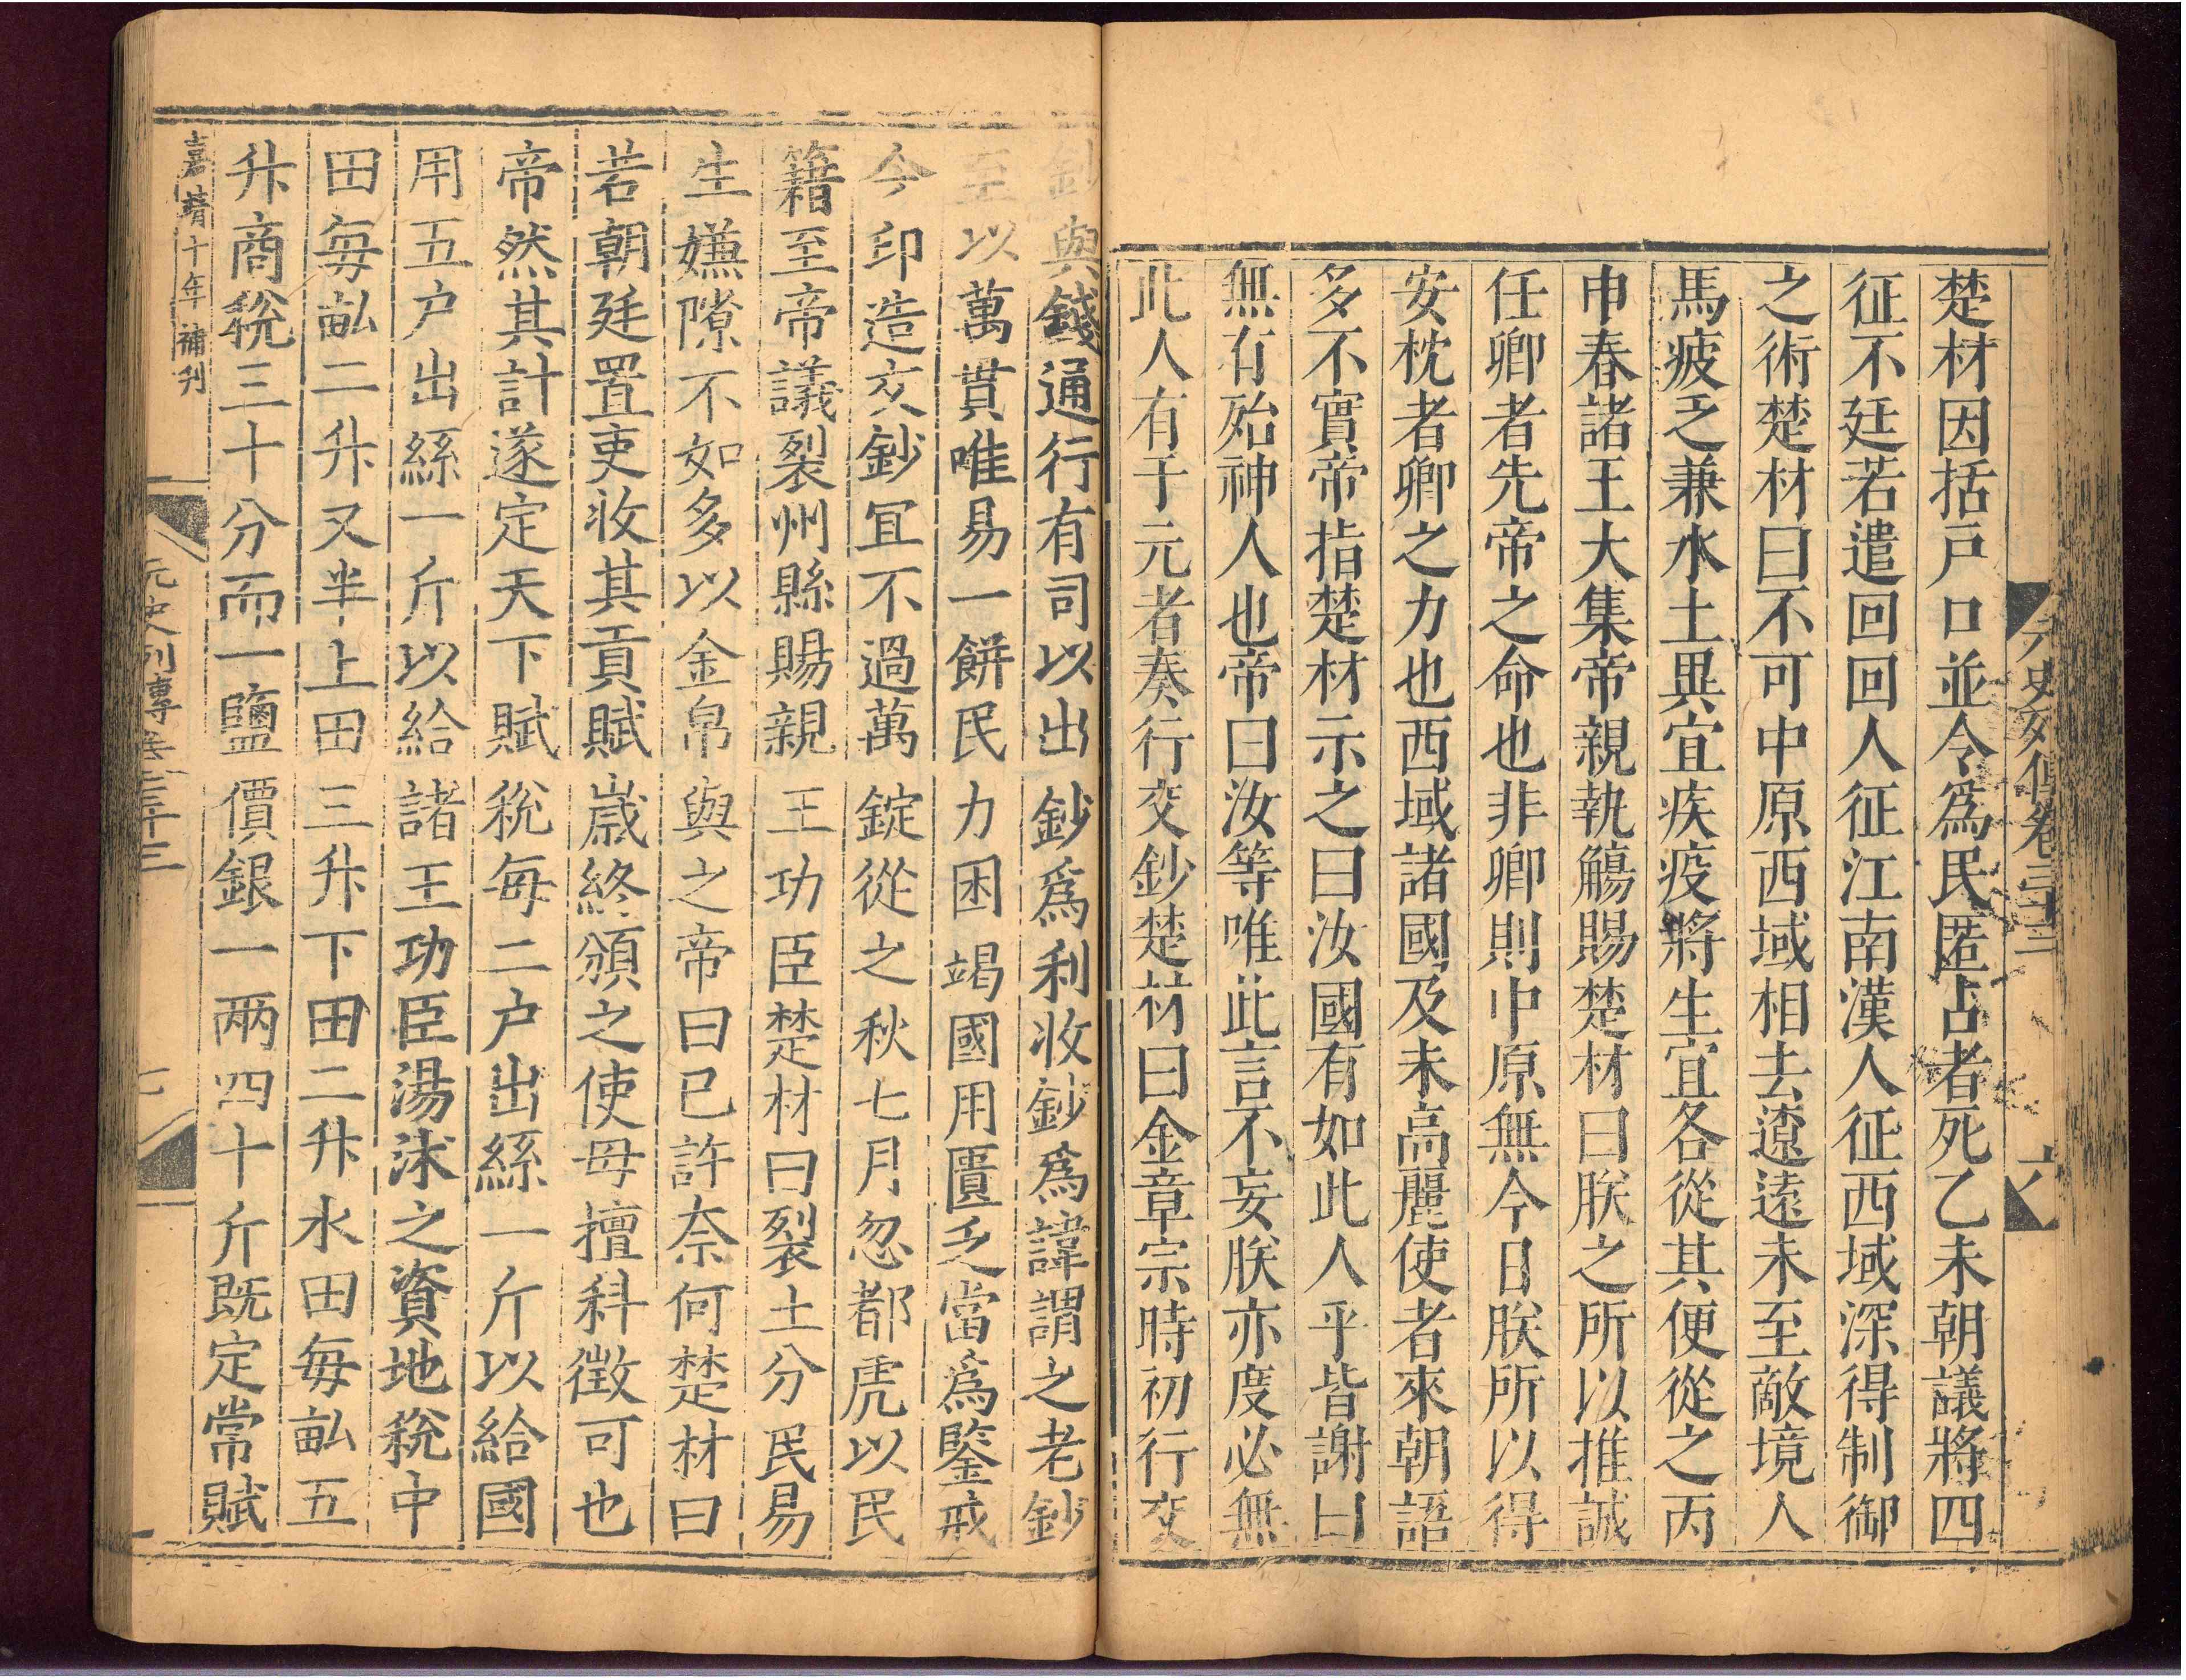 楚材因括戶口並令爲民匿占者死乙未朝議將四
征不廷若遣回回人征江南漢人征西域深得制御
之術楚材曰不可中原西域相去遼遠未至敵境人
馬疲乏兼水土異宜疾疫將生宜各從其便從之丙
申春諸王大集帝親執觴賜楚材曰朕之所以推誠
任卿者先帝之命也非卿則中原無今日朕所以得
安枕者卿之力也西域諸國及未高麗使者來朝語
多不實帝指楚材示之曰汝國有如此人乎皆謝曰
無有殆神人也帝曰汝等唯此言不妄朕亦度必無
此人有于元者奏行交鈔楚材曰金章宗時初行交
鈔與錢通行有司以出鈔爲利收鈔爲諱謂之老鈔
至以萬貫唯易一餅民力困竭國用匱乏當爲鑒戒
今印造交鈔宜不過萬錠從之秋七月忽都虎以民
籍至帝議裂州縣賜親王功臣楚材曰裂土分民易
生嫌隙不如多以金帛與之帝曰已許奈何楚材曰
若朝廷置吏收其貢賦歲終頒之使毋擅科徵可也
帝然其計遂定天下賦稅每二戶出絲一斤以給國
用五戶出絲一斤以給諸王功臣湯沐之資地稅中
田每畝二升又半上田三升下田二升水田每畝五
升商稅三十分而一鹽價銀一兩四十斤既定常賦
嘉靖十年補刋
元史列傳卷三十三